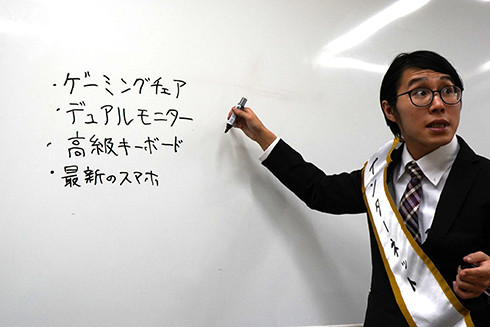 ・ゲーミングチェア
・デュアルモニター
・高級キーボード
・最新のスマホ
インターネット